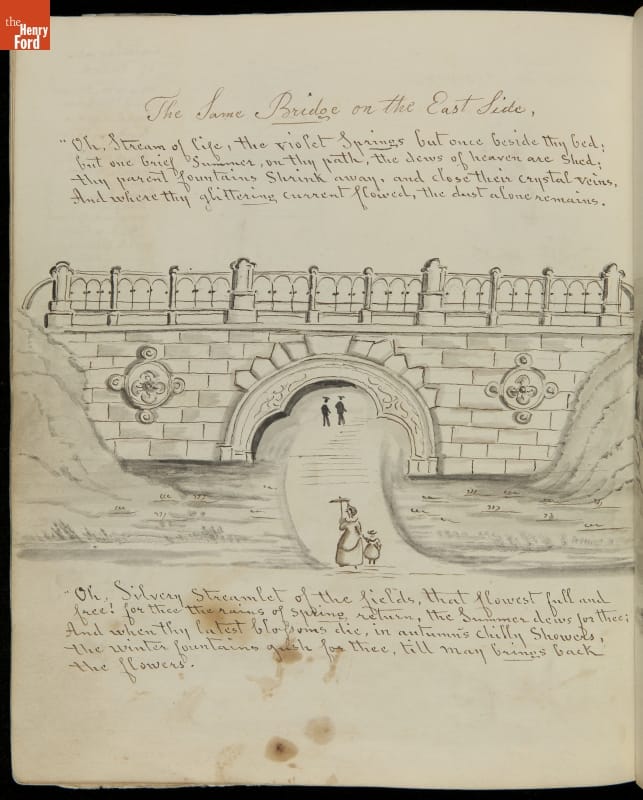 the
Henry
Ford
The Same Bridge on the East Side,
"Oh, Stream of life, the violet Springs but once beside thy bed;
but one brief Summer, on thy path, the dews of heaven are Shed;
thy parent fountains Shrink away, and close their crystal veins,
And where thy glittering current flowed, the dust alone remains.
"Oh, Silvery Streamlet of the fields, that flowest full and
free! for thee the rains of spring return, the Summer dews for thee;
And when thy latest blossoms die, in autumn's chilly Showers,
the winter fountains gush for thee, till may brings back
the flowers.